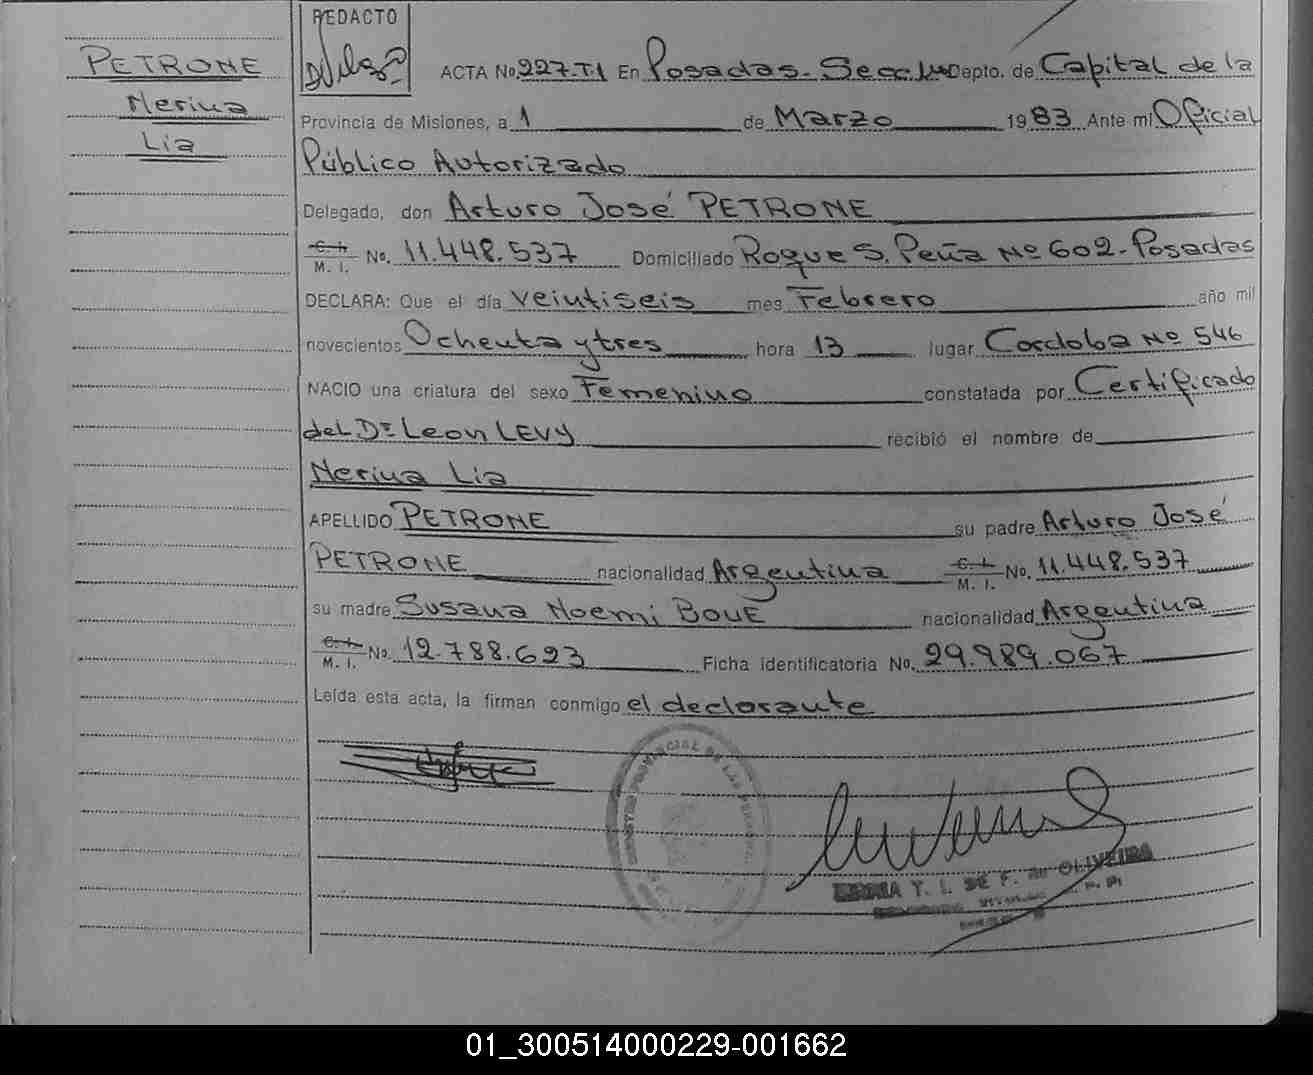 PETRONE
Nerina
Lia
REDACTO
ACTA No. 227-T.1 En Posadas - Secc. Depto. de Capital de la
Provincia de Misiones, a 1 de Marzo 1983 Ante mí Oficial
Público Autorizado
Delegado, don Arturo José PETRONE
C. I. M. I. No. 11.448.537 Domiciliado Roque S. Peña Nº 602 - Posadas
DECLARA: Que el día veintiseis mes Febrero año mil
novecientos Ochenta y tres hora 13 lugar Cordoba Nº 546
NACIO una criatura del sexo Femenino constatada por Certificado
del Dr Leon LEVY recibió el nombre de
Nerina Lia
APELLIDO PETRONE su padre Arturo José
PETRONE nacionalidad Argentina C. I. M. I. No. 11.448.537
su madre Susana Noemi BOUE nacionalidad Argentina
C. I. M. I. No. 12.788.623 Ficha Identificatoria No. 29.989.067
Leída esta acta, la firman conmigo el declarante
PROVINCIAL DE LAS
T. I. DE F. de OLIVEIRA
01_300514000229-001662